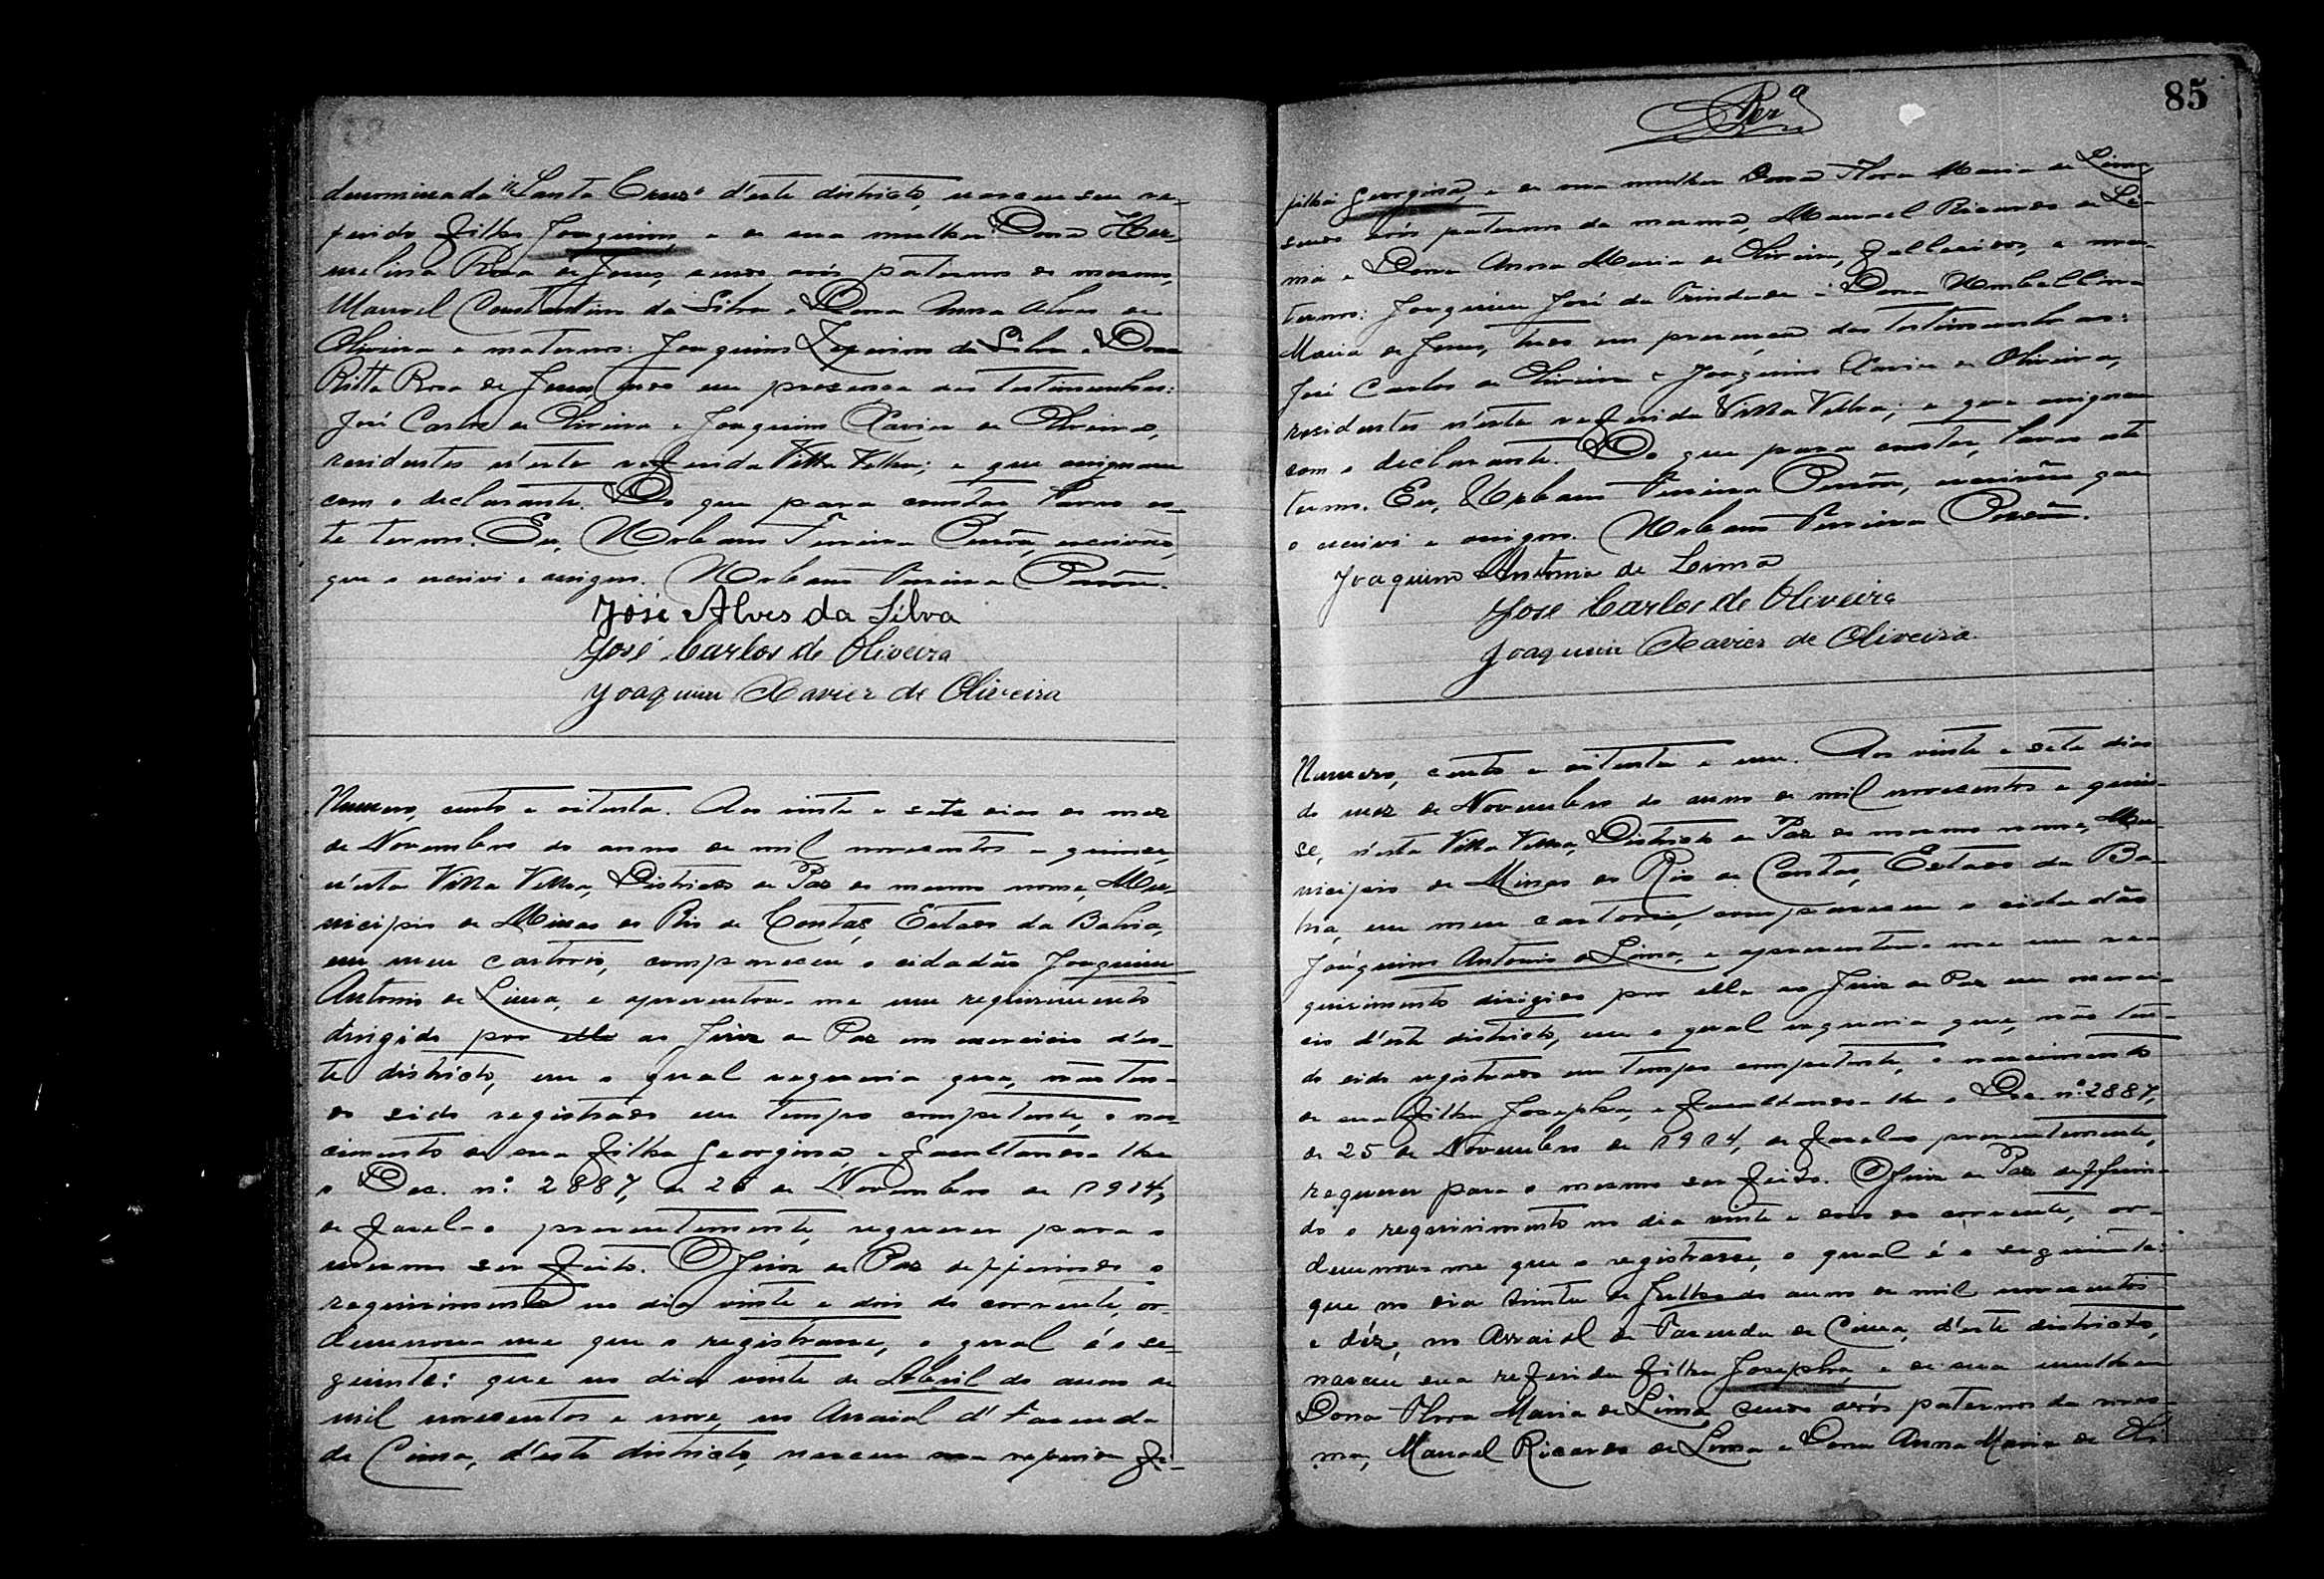 denominada "Santa Cruz" d'este districto, nasceu seu re-
ferido filho Joaquim, e de sua mulher Dona Her-
melina Rosa de Jesus, sendo avós paternos do mesmo,
Manoel Constantino da Silva e Dona Anna Alves de
Oliveira e maternos: Joaquim Zeferino da Silva e Dona
Ritta Rosa de Jesus, tudo em presença das testimunhas:
José Carlos de Oliveira e Joaquim Xavier de Oliveira,
residentes n'esta referida Villa Velha; e que assignam
com o declarante. Do que para constar, lavro es-
te termo. Eu, Urbano Pereira escrivão,
que o escrivi e assigno. Urbano Pereira
José Alves da Silva
José Carlos de Oliveira
Joaquim Xavier de Oliveira
Numero, cento e oitenta. Aos vinte e sete dias do mez
de Novembro do anno de mil novecentos e quinze,
n'esta Villa Velha, Districto de Paz do mesmo nome, Mu-
nicipio de Minas do Rio de Contas, Estado da Bahia,
em meu cartorio, compareceu o cidadão Joaquim
Antonio de Lima, e apresentou-me um requirimento
dirigido por elle ao Juiz de Paz em exercicio d'es-
te districto, em o qual requeria que, não ten-
do sido registrado em tempo competente, o nas-
cimento de sua filha Georgina, e facultando-lhe
o Dec. nº 2887, de 25 de Novembro de 1914,
de fazel-o presentemente, requerer para o
mesmo ser feito. O Juiz de Paz defferindo o
requirimento no dia vinte e dois do corrente, or-
denou-me que o registrasse, o qual é o se-
guinte: que no dia vinte de Abril do anno de
mil novecentos e nove, no Arraial d' Fazenda
de Cima, d'este districto, nasceu sua referida fi-
85
Per.ª
filha Georgina, e de sua mulher Dona Flora Maria de Lima,
sendo avós paternos da mesma, Manoel Ricardo de Li-
ma e Dona Anna Maria de Oliveira, fallecidos, e ma-
ternos: Joaquim José da Trindade e Dona Umbellina
Maria de Jesus, tudo em presença das testimunhas:
José Carlos de Oliveira e Joaquim Xavier de Oliveira,
residentes n'esta referida Villa Velha; e que assignam
com o declarante. Do que para constar, lavro este
termo. Eu, Urbano Pereira escrivão que
o escrivi e assigno. Urbano Pereira
Joaquim Antonio de Lima
José Carlos de Oliveira
Joaquim Xavier de Oliveira
Numero, cento e oitenta e um. Aos vinte e sete dias
do mez de Novembro do anno de mil novecentos e quin-
se, n'esta Villa Velha, Districto de Paz do mesmo nome, Mu-
nicipio de Minas do Rio de Contas, Estado da Ba-
hia, em meu cartorio, compareceu o cidadão
Joaquim Antonio de Lima, e apresentou-me um re-
querimento dirigido por elle ao Juiz de Paz em exerci-
cio d'este districto, em o qual requeria que, não ten-
do sido registrado em tempo competente, o nascimento
de sua filha Josepha, e facultando-lhe o Dec. nº 2887,
de 25 de Novembro de 1914, de fazel-o presentemente,
requerer para o mesmo ser feito. O Juiz de Paz defferin-
do o requirimento no dia vinte e dois do corrente, or-
denou-me que o registrasse, o qual é o seguinte:
que no dia trinta de Julho do anno de mil novecentos
e déz, no Arraial de Fazenda de Cima, d'este districto,
nasceu sua referida filha Josepha, e de sua mulher
Dona Flora Maria de Lima, sendo avós paternos da mes-
ma, Manoel Ricardo de Lima e Dona Anna Maria de Oli-